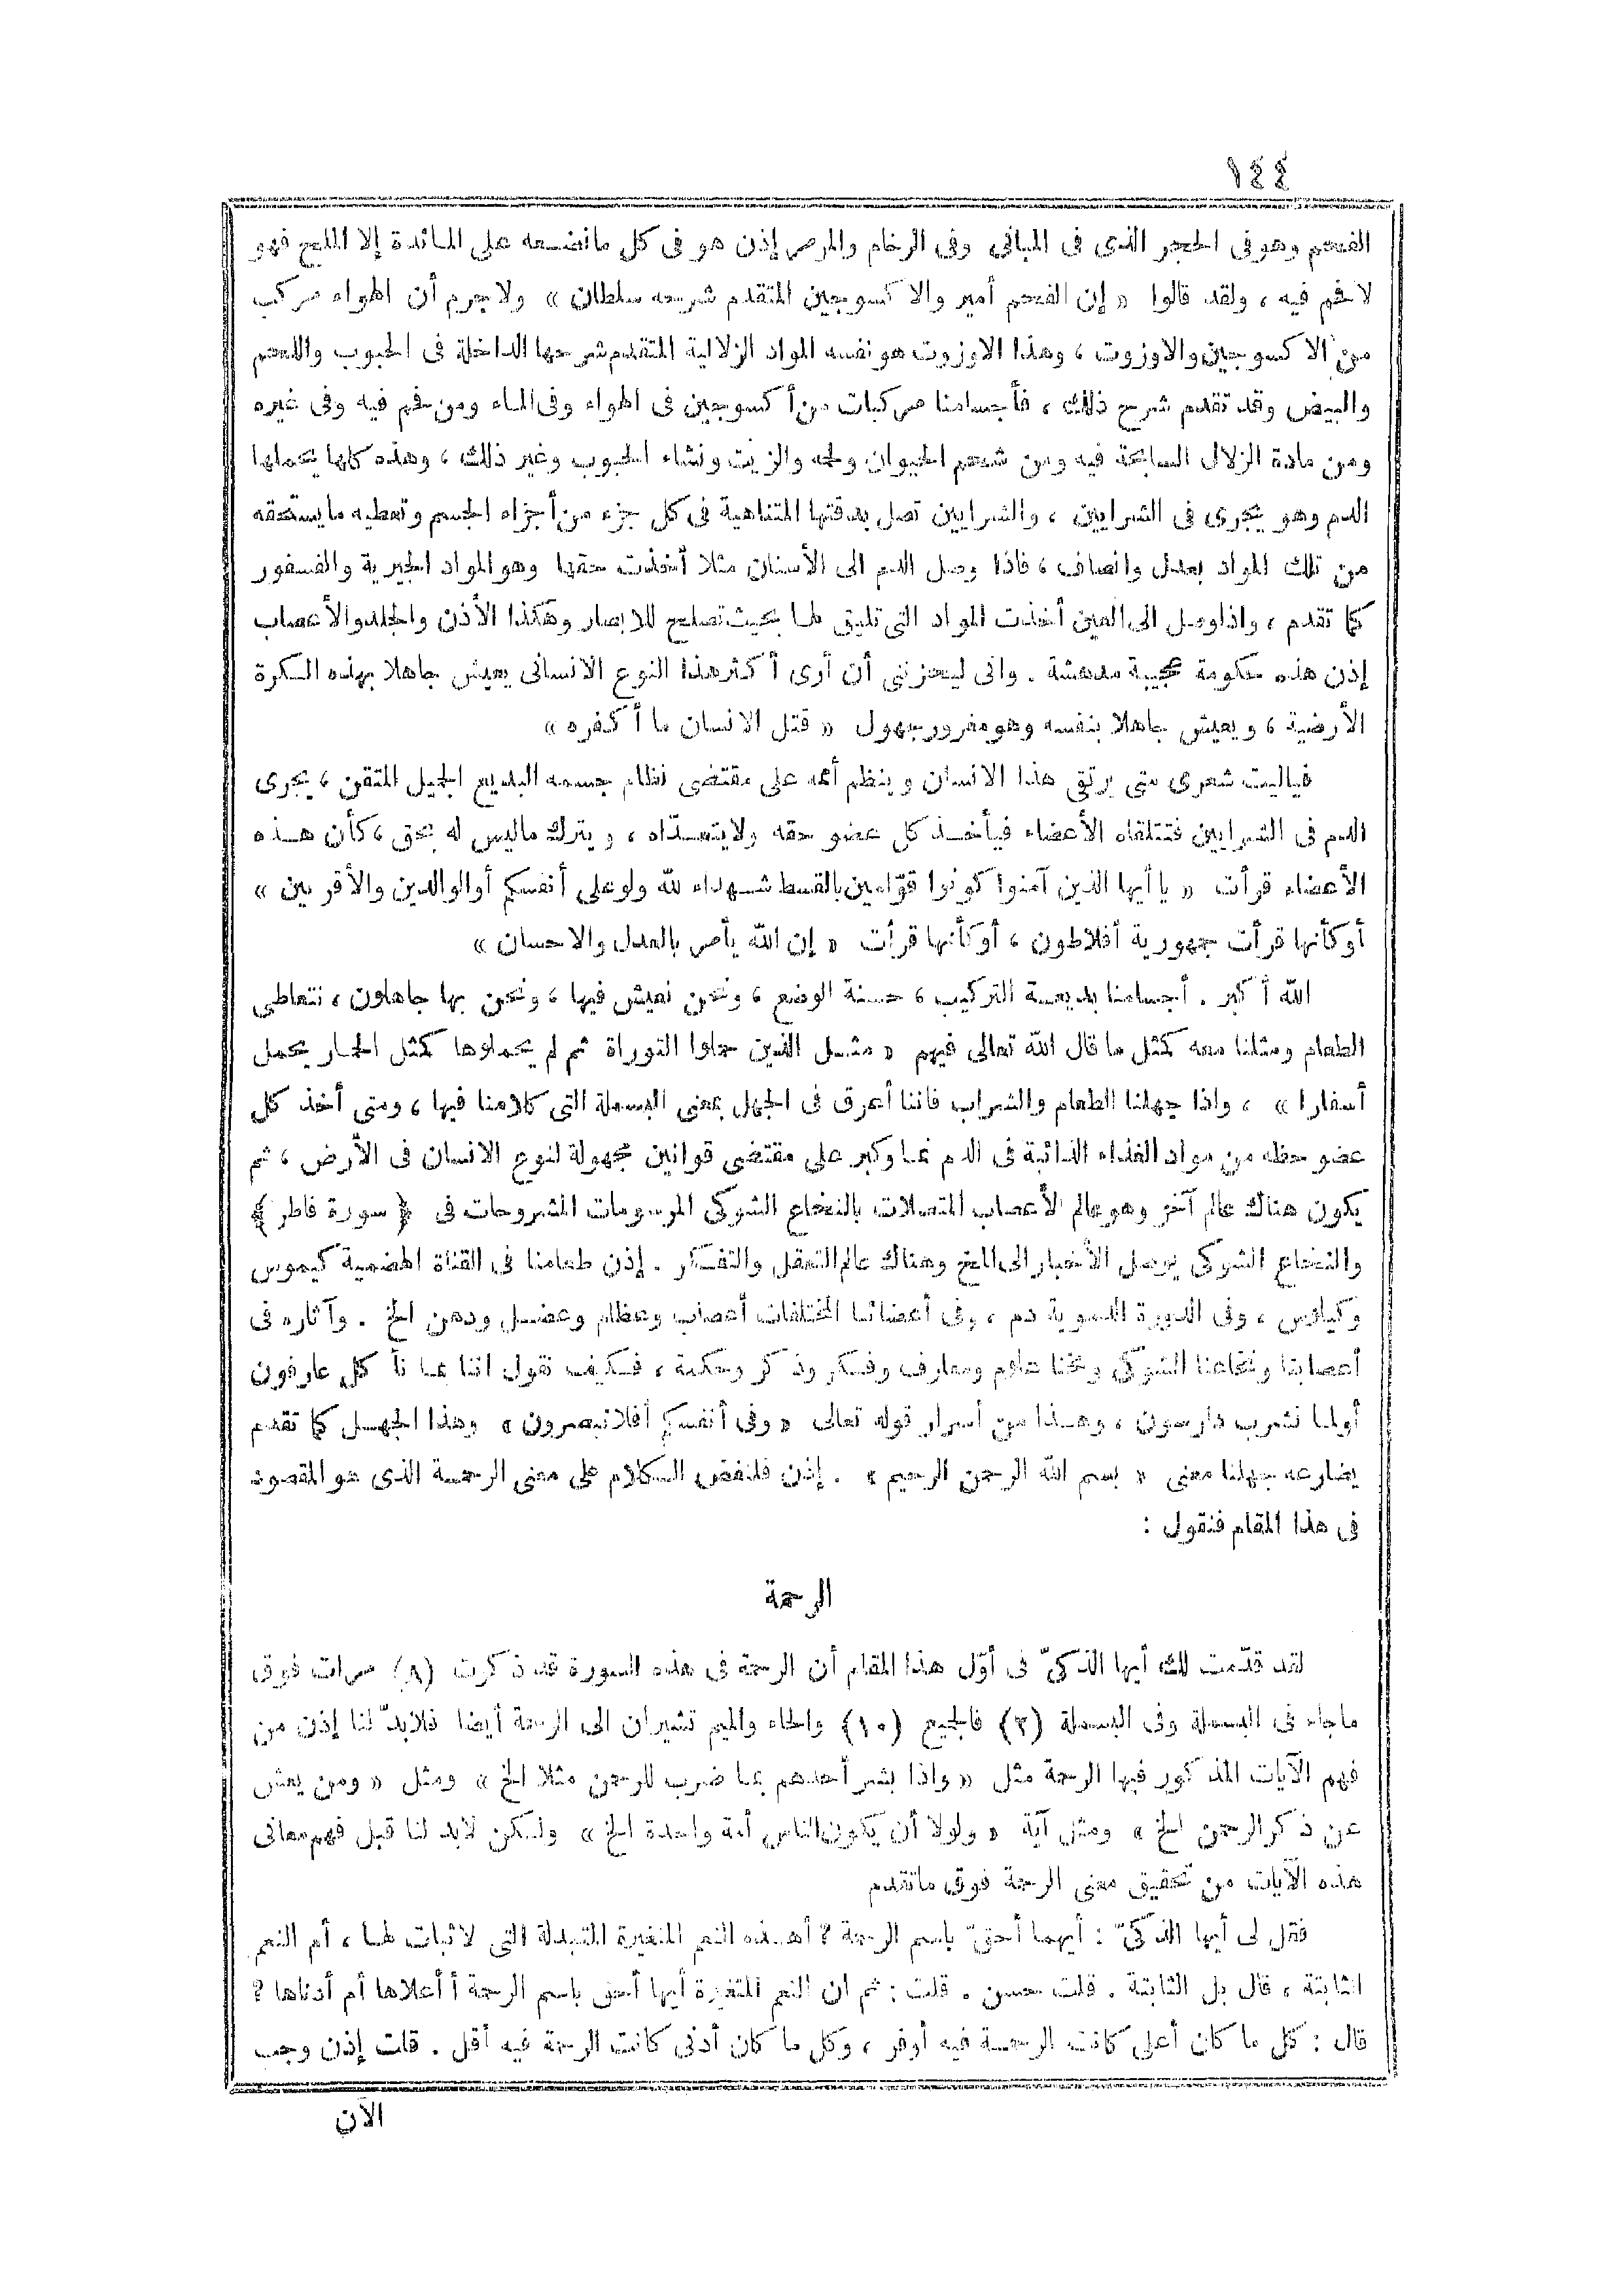 ١٤٤
الفحم وهو فى الحجر الذى فى المبانى وفى الرخام والمرمر إذن هو فى كل مانضعه على المائدة إلا الملح فهو
لا فم فيه ، ولقد قالوا « إن الفحم أمير والاكسوجين المتقدم شرحه سلطان » ولاجرم أن الهواء مركب
من الاكسوجين والاوزوت ، وهذا الاوزوت هو نفسه المواد الزلالية المتقدم شرحها الداخلة فى الحبوب واللحم
والبيض وقد تقدم شرح ذلك ، فأجسامنا مركبات من أكسوجين فى الهواء وفى الماء ومن فحم فيه وفى غيره
ومن مادة الزلال السابحة فيه ومن شحم الحيوان ولحمه والزيت ونشاء الحبوب وغير ذلك ، وهذه كلها يحملها
الدم وهو يجرى فى الشرايين ، والشرايين تصل بدقتها المتناهية فى كل جزء من أجزاء الجسم وتعطيه مايستحقه
من تلك المواد بعدل وانصاف ، فاذا وصل الدم الى الأسنان مثلا أخذت حقها وهو المواد الجيرية والفسفور
كما تقدم ، واذا وصل الى العين أخذت المواد التى تليق لها بحيث تصلح للابصار وهكذا الأذن والجلد والأعصاب
إذن هذه حكومة عجيبة مدهشة . وانى ليحزننى أن أرى أكثر هذا النوع الانسانى يعيش جاهلا بهذه الكرة
الأرضية ، ويعيش جاهلا بنفسه وهو مغرور جهول « قتل الانسان ما أكفره »
فياليت شعرى متى يرتقى هذا الانسان وينظم أممه على مقتضى نظام جسمه البديع الجميل المتقن ، يجرى
الدم فى الشرايين فتتلقاه الأعضاء فيأخذ كل عضو حقه ولايتعدّاه ، ويترك ماليس له بحق ، كأن هذه
الأعضاء قرأت « يا أيها الذين آمنوا كونوا قوّامين بالقسط شهداء لله ولو على أنفسكم أوالوالدين والأقربين »
أوكأنها قرأت جمهورية أفلاطون ، أوكأنها قرأت « إن الله يأمر بالعدل والاحسان »
الله أكبر . أجسامنا بديعة التركيب ، حسنة الوضع ، ونحن نعيش فيها ، ونحن بها جاهلون ، نتعاطى
الطعام ومثلنا معه كمثل ماقال الله تعالى فيهم « مثل الذين حملوا التوراة ثم لم يحملوها كمثل الحمار يحمل
أسفارا » ، واذا جهلنا الطعام والشراب فاننا أعرق فى الجهل بمعنى البسملة التى كلامنا فيها ، ومتى أخذ كل
عضو حظه من مواد الغذاء الذائبة فى الدم نما وكبر على مقتضى قوانين مجهولة لنوع الانسان فى الأرض ، ثم
يكون هناك عالم آخر وهو عالم الأعصاب المتصلات بالنخاع الشوكى المرسومات المشروحات فى ﴿ سورة فاطر ﴾
والنخاع الشوكى يوصل الأخبار الى المخ وهناك عالم التعقل والتفكر . إذن طعامنا فى القناة الهضمية كيموس
وكيلوس ، وفى الدورة الدموية دم ، وفى أعضائنا المختلفات أعصاب وعظام وعضل ودهن الخ . وآثاره فى
أعصابنا ونخاعنا الشوكى ومخنا علوم ومعارف وفكر وذكر وحكمة ، فكيف نقول اننا بما نأكل عارفون
أولما نشرب دارسون ، وهذا من أسرار قوله تعالى « وفى أنفسكم أفلاتبصرون » وهذا الجهل كما تقدم
يضارعه جهلنا معنى « بسم الله الرحمن الرحيم » . إذن فلنفض الكلام على معنى الرحمة الذى هو المقصود
فى هذا المقام فنقول :
الرحمة
لقد قدّمت لك أيها الذكىّ فى أوّل هذا المقام أن الرحمة فى هذه السورة قد ذكرت (٨) مرات فوق
ماجاء فى البسملة وفى البسملة (٢) فالجميع (١٠) والحاء والميم تشيران الى الرحمة أيضا فلابدّ لنا إذن من
فهم الآيات المذكور فيها الرحمة مثل « واذا بشر أحدهم بما ضرب للرحمن مثلا الخ » ومثل « ومن يعش
عن ذكر الرحمن الخ » ومثل آية « ولولا أن يكون الناس أمة واحدة الخ » ولكن لابد لنا قبل فهم معانى
هذه الآيات من تحقيق معنى الرحمة فوق ماتقدم
فقل لى أيها الذكىّ : أيهما أحقّ باسم الرحمة ؟ أهذه النعم المتغيرة المتبدلة التى لاثبات لها ، أم النعم
الثابتة ، قال بل الثابتة . قلت حسن . قلت : ثم ان النعم المتغيرة أيها أحق باسم الرحمة أأعلاها أم أدناها ؟
قال : كل ما كان أعلى كانت الرحمة فيه أوفر ، وكل ما كان أدنى كانت الرحمة فيه أقل . قلت إذن وجب
الآن